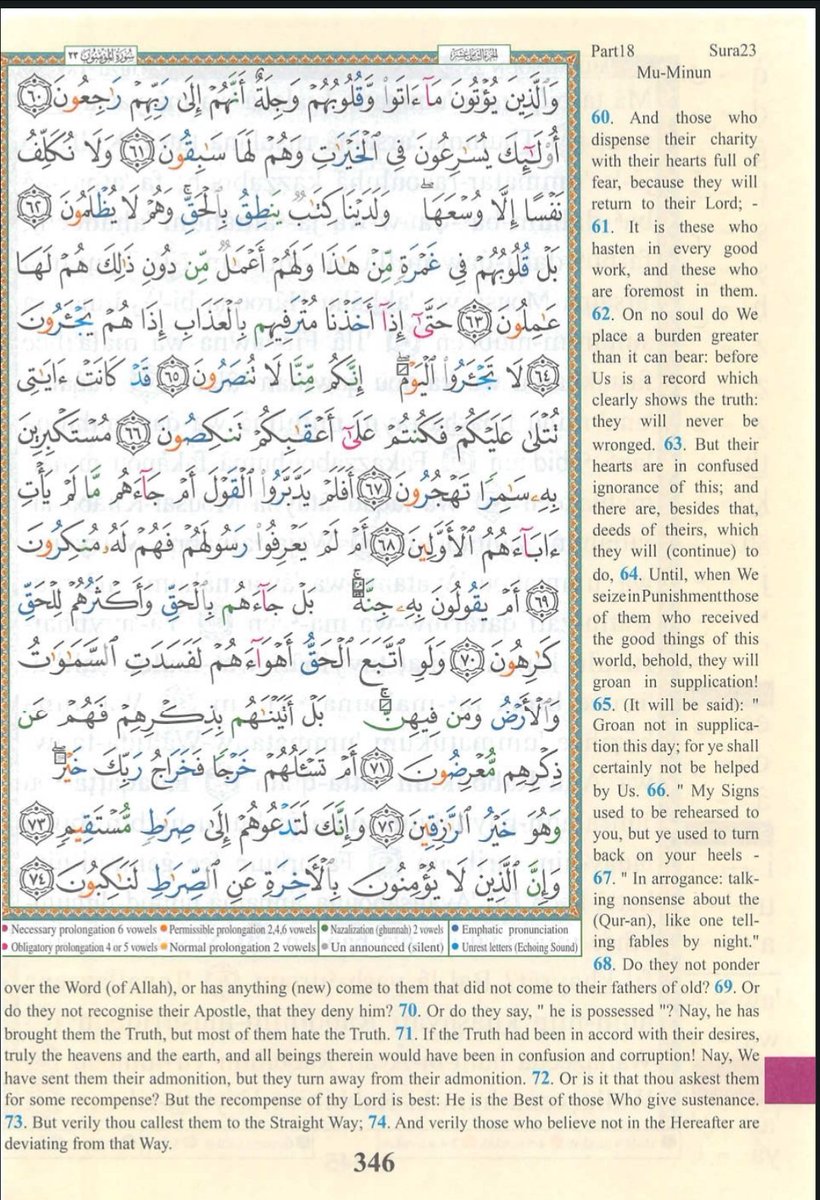 سُورَةُ المُؤْمِنُونَ ٢٣
الجُزْءُ الثَّامِنُ عَشَرَ
Part18 Sura23
Mu-Minun
وَٱلَّذِينَ يُؤْتُونَ مَآ ءَاتَوا۟ وَّقُلُوبُهُمْ وَجِلَةٌ أَنَّهُمْ إِلَىٰ رَبِّهِمْ رَٰجِعُونَ ﴿٦٠﴾
أُو۟لَـٰٓئِكَ يُسَـٰرِعُونَ فِى ٱلْخَيْرَٰتِ وَهُمْ لَهَا سَـٰبِقُونَ ﴿٦١﴾ وَلَا نُكَلِّفُ
نَفْسًا إِلَّا وُسْعَهَا ۖ وَلَدَيْنَا كِتَـٰبٌ يَنطِقُ بِٱلْحَقِّ ۚ وَهُمْ لَا يُظْلَمُونَ ﴿٦٢﴾
بَلْ قُلُوبُهُمْ فِى غَمْرَةٍ مِّنْ هَـٰذَا وَلَهُمْ أَعْمَـٰلٌ مِّن دُونِ ذَٰلِكَ هُمْ لَهَا
عَـٰمِلُونَ ﴿٦٣﴾ حَتَّىٰٓ إِذَآ أَخَذْنَا مُتْرَفِيهِم بِٱلْعَذَابِ إِذَا هُمْ يَجْـَٔرُونَ
﴿٦٤﴾ لَا تَجْـَٔرُوا۟ ٱلْيَوْمَ ۖ إِنَّكُم مِّنَّا لَا تُنصَرُونَ ﴿٦٥﴾ قَدْ كَانَتْ ءَايَـٰتِى
تُتْلَىٰ عَلَيْكُمْ فَكُنتُمْ عَلَىٰٓ أَعْقَـٰبِكُمْ تَنكِصُونَ ﴿٦٦﴾ مُسْتَكْبِرِينَ
بِهِۦ سَـٰمِرًا تَهْجُرُونَ ﴿٦٧﴾ أَفَلَمْ يَدَّبَّرُوا۟ ٱلْقَوْلَ أَمْ جَآءَهُم مَّا لَمْ يَأْتِ
ءَابَآءَهُمُ ٱلْأَوَّلِينَ ﴿٦٨﴾ أَمْ لَمْ يَعْرِفُوا۟ رَسُولَهُمْ فَهُمْ لَهُۥ مُنكِرُونَ
﴿٦٩﴾ أَمْ يَقُولُونَ بِهِۦ جِنَّةٌۢ ۚ بَلْ جَآءَهُم بِٱلْحَقِّ وَأَكْثَرُهُمْ لِلْحَقِّ
كَـٰرِهُونَ ﴿٧٠﴾ وَلَوِ ٱتَّبَعَ ٱلْحَقُّ أَهْوَآءَهُمْ لَفَسَدَتِ ٱلسَّمَـٰوَٰتُ
وَٱلْأَرْضُ وَمَن فِيهِنَّ ۚ بَلْ أَتَيْنَـٰهُم بِذِكْرِهِمْ فَهُمْ عَن
ذِكْرِهِم مُّعْرِضُونَ ﴿٧١﴾ أَمْ تَسْـَٔلُهُمْ خَرْجًا فَخَرَاجُ رَبِّكَ خَيْرٌ ۖ
وَهُوَ خَيْرُ ٱلرَّٰزِقِينَ ﴿٧٢﴾ وَإِنَّكَ لَتَدْعُوهُمْ إِلَىٰ صِرَٰطٍ مُّسْتَقِيمٍ ﴿٧٣﴾
وَإِنَّ ٱلَّذِينَ لَا يُؤْمِنُونَ بِٱلْـَٔاخِرَةِ عَنِ ٱلصِّرَٰطِ لَنَـٰكِبُونَ ﴿٧٤﴾
Necessary prolongation 6 vowels Permissible prolongation 2,4,6 vowels Nazalization (ghunnah) 2 vowels Emphatic pronunciation
Obligatory prolongation 4 or 5 vowels Normal prolongation 2 vowels Un announced (silent) Unrest letters (Echoing Sound)
60. And those who
dispense their charity
with their hearts full of
fear, because they will
return to their Lord; -
61. It is these who
hasten in every good
work, and these who
are foremost in them.
62. On no soul do We
place a burden greater
than it can bear: before
Us is a record which
clearly shows the truth:
they will never be
wronged. 63. But their
hearts are in confused
ignorance of this; and
there are, besides that,
deeds of theirs, which
they will (continue) to
do, 64. Until, when We
seize in Punishment those
of them who received
the good things of this
world, behold, they will
groan in supplication!
65. (It will be said): "
Groan not in supplica-
tion this day; for ye shall
certainly not be helped
by Us. 66. " My Signs
used to be rehearsed to
you, but ye used to turn
back on your heels -
67. " In arrogance: talk-
ing nonsense about the
(Qur-an), like one tell-
ing fables by night."
68. Do they not ponder
over the Word (of Allah), or has anything (new) come to them that did not come to their fathers of old? 69. Or
do they not recognise their Apostle, that they deny him? 70. Or do they say, " he is possessed "? Nay, he has
brought them the Truth, but most of them hate the Truth. 71. If the Truth had been in accord with their desires,
truly the heavens and the earth, and all beings therein would have been in confusion and corruption! Nay, We
have sent them their admonition, but they turn away from their admonition. 72. Or is it that thou askest them
for some recompense? But the recompense of thy Lord is best: He is the Best of those Who give sustenance.
73. But verily thou callest them to the Straight Way; 74. And verily those who believe not in the Hereafter are
deviating from that Way.
346